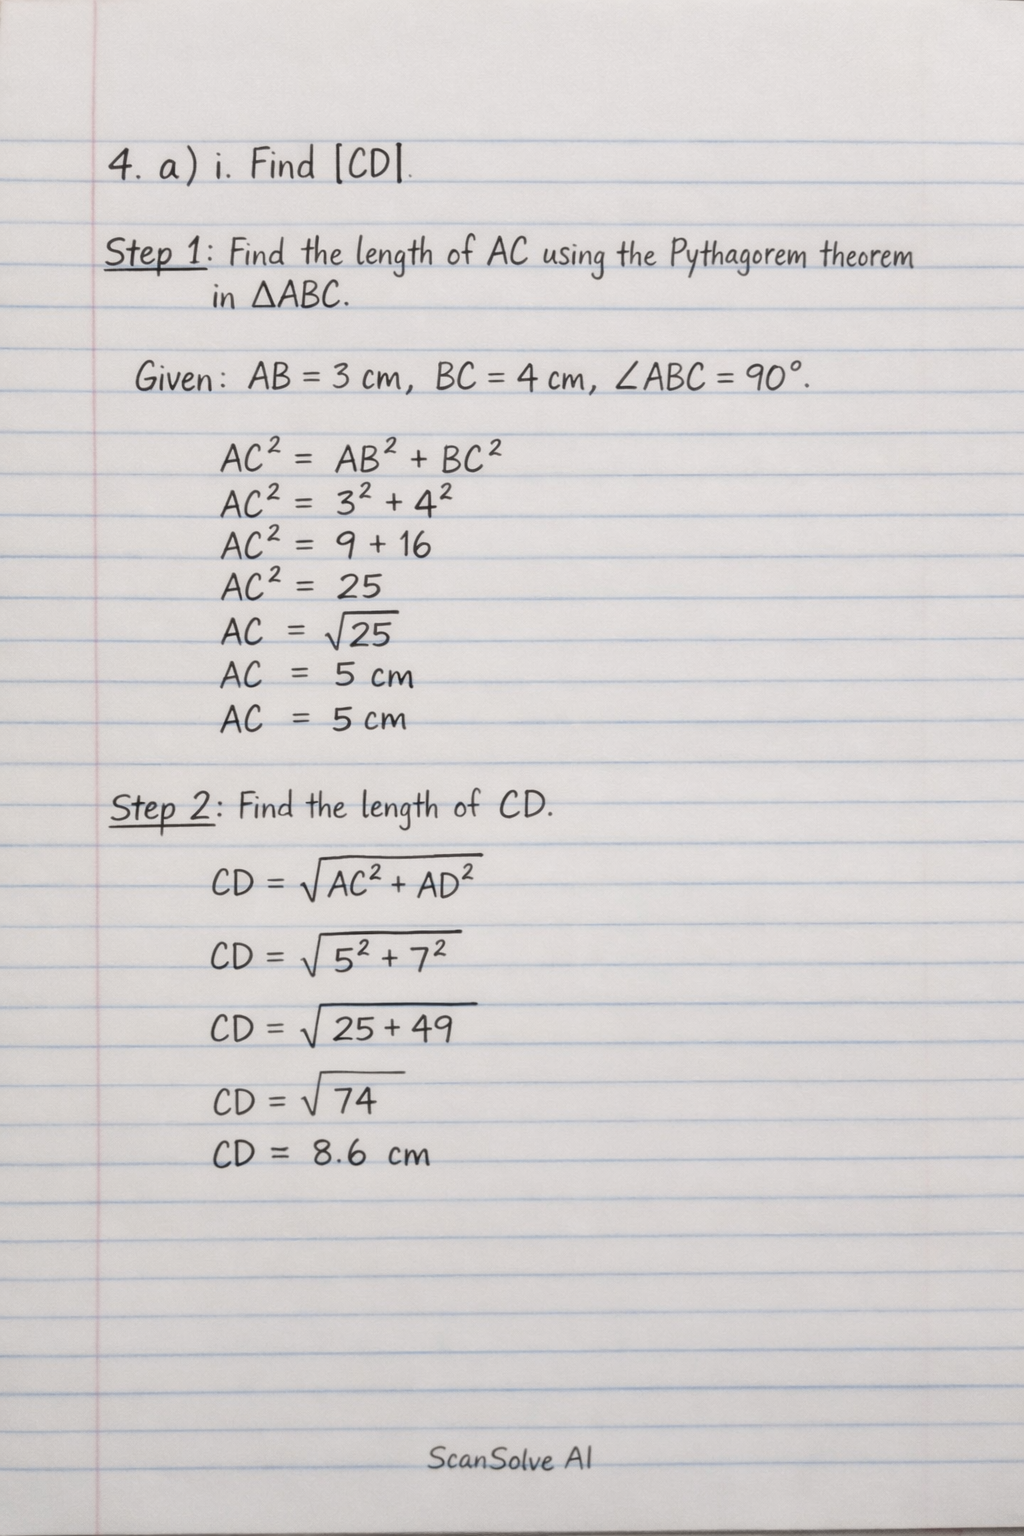 4. a) i. Find [CD].
Step 1: Find the length of AC using the Pythagorem theorem
in ΔABC.
Given: AB = 3 cm, BC = 4 cm, ∠ABC = 90°.
AC² = AB² + BC²
AC² = 3² + 4²
AC² = 9 + 16
AC² = 25
AC = √25
AC = 5 cm
AC = 5 cm
Step 2: Find the length of CD.
CD = √AC² + AD²
CD = √5² + 7²
CD = √25 + 49
CD = √74
CD = 8.6 cm
ScanSolve AI